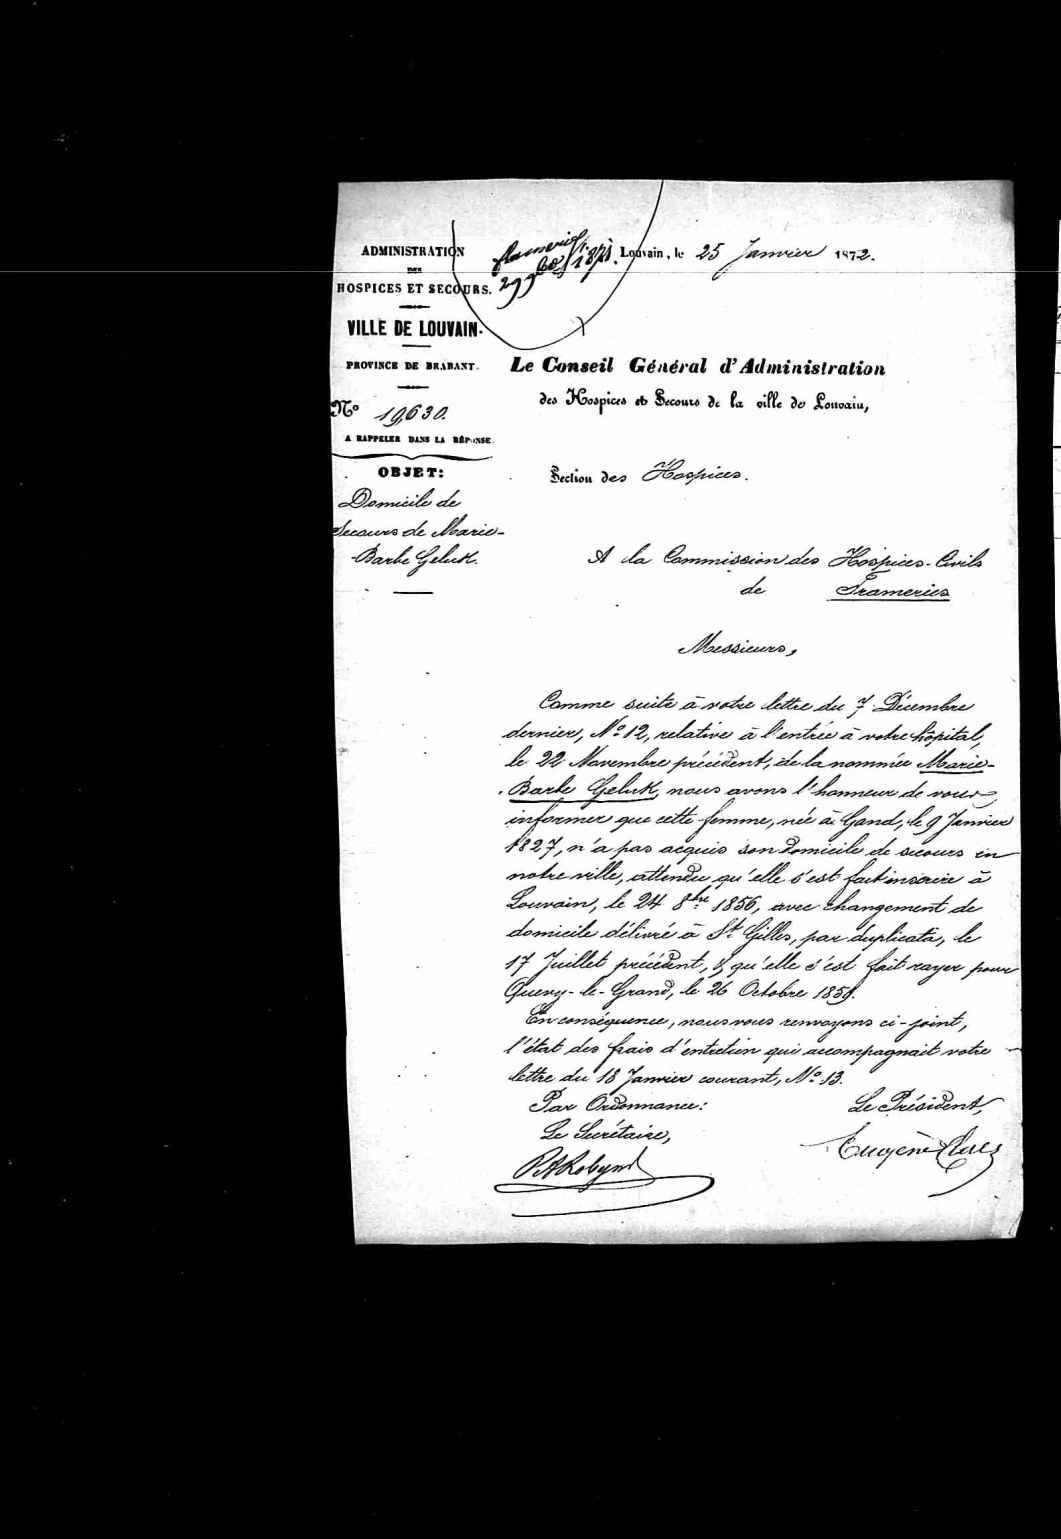 ADMINISTRATION
DES
HOSPICES ET SECOURS.
VILLE DE LOUVAIN.
PROVINCE DE BRABANT.
Nº 19,630.
A RAPPELER DANS LA RÉPONSE.
OBJET:
Domicile de
Secours de Marie-
-Barbe Geluk.
Louvain, le 25 Janvier 1872.
Le Conseil Général d'Administration
des Hospices et Secours de la ville de Louvain,
Section des Hospices.
A la Commission des Hospices-Civils
de Frameries
Messieurs,
Comme suite à votre lettre du 7 Décembre
dernier, Nº 12, relative à l'entrée à votre hôpital,
le 22 Novembre précédent, de la nommée Marie-
-Barbe Geluk, nous avons l'honneur de vous
informer que cette femme, née à Gand, le 9 Janvier
1827, n'a pas acquis son domicile de secours en
notre ville, attendu qu'elle s'est fait inscrire à
Louvain, le 24 8bre 1856, avec changement de
domicile délivré à St Gilles, par duplicata, le
17 Juillet précédent, & qu'elle s'est fait rayer pour
Quevy-le-Grand, le 26 Octobre
En conséquence, nous vous renvoyons ci-joint,
l'état des frais d'entretien qui accompagnait votre
lettre du 18 Janvier courant, Nº 13.
Par Ordonnance:
Le Secrétaire,
Le Président,